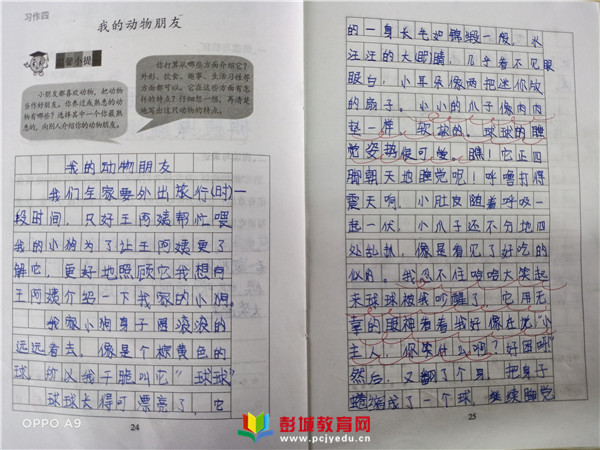 习作四
我的动物朋友
小提
小朋友都喜欢动物，把动
物当作好朋友。你养过或熟悉的动
物有哪些？选择其中一个你最熟
悉的，向别人介绍你的动物朋友。
你打算从哪些方面介绍它？
外形、饮食、趣事、生活习性等
方面都可以。它在这些方面有怎
样的特点？仔细想一想，再清楚
地写出这只动物的特点。
我的动物朋友
我们全家要外出旅行(时)一
段时间，只好王阿姨帮忙喂
我的小狗为了让王阿姨更了
解它，更好地照顾它我想向
王阿姨介绍一下我家的小狗。
我家小狗身子圆滚滚的
远远看去，像是个棕黄色的
球，所以我干脆叫它“球球”
球球长得可漂亮了，它
24
OPPO A9
的一身长毛如锦缎一般，水
汪汪的大眼睛，几乎看不见眼
眼白，小耳朵像两把迷你版
的扇子。小小的爪子像肉肉
垫一样，软软的。球球的睡
觉姿势便可爱。瞧！它正四
脚朝天地睡觉呢！呼噜打得
震天响，小肚皮随着呼吸一
起一伏，小爪子还不分地四
处乱扒，像是看见了好吃的
似的。我忍不住哈哈大笑起
来球球被我吵醒了，它用无
辜的眼神看着我好像在说“小
主人，你笑什么啊？好困啊”
然后，又翻了个身，把身子
缩成了一个球，继续睡觉
25
彭城教育网
www.pcjyedu.cn